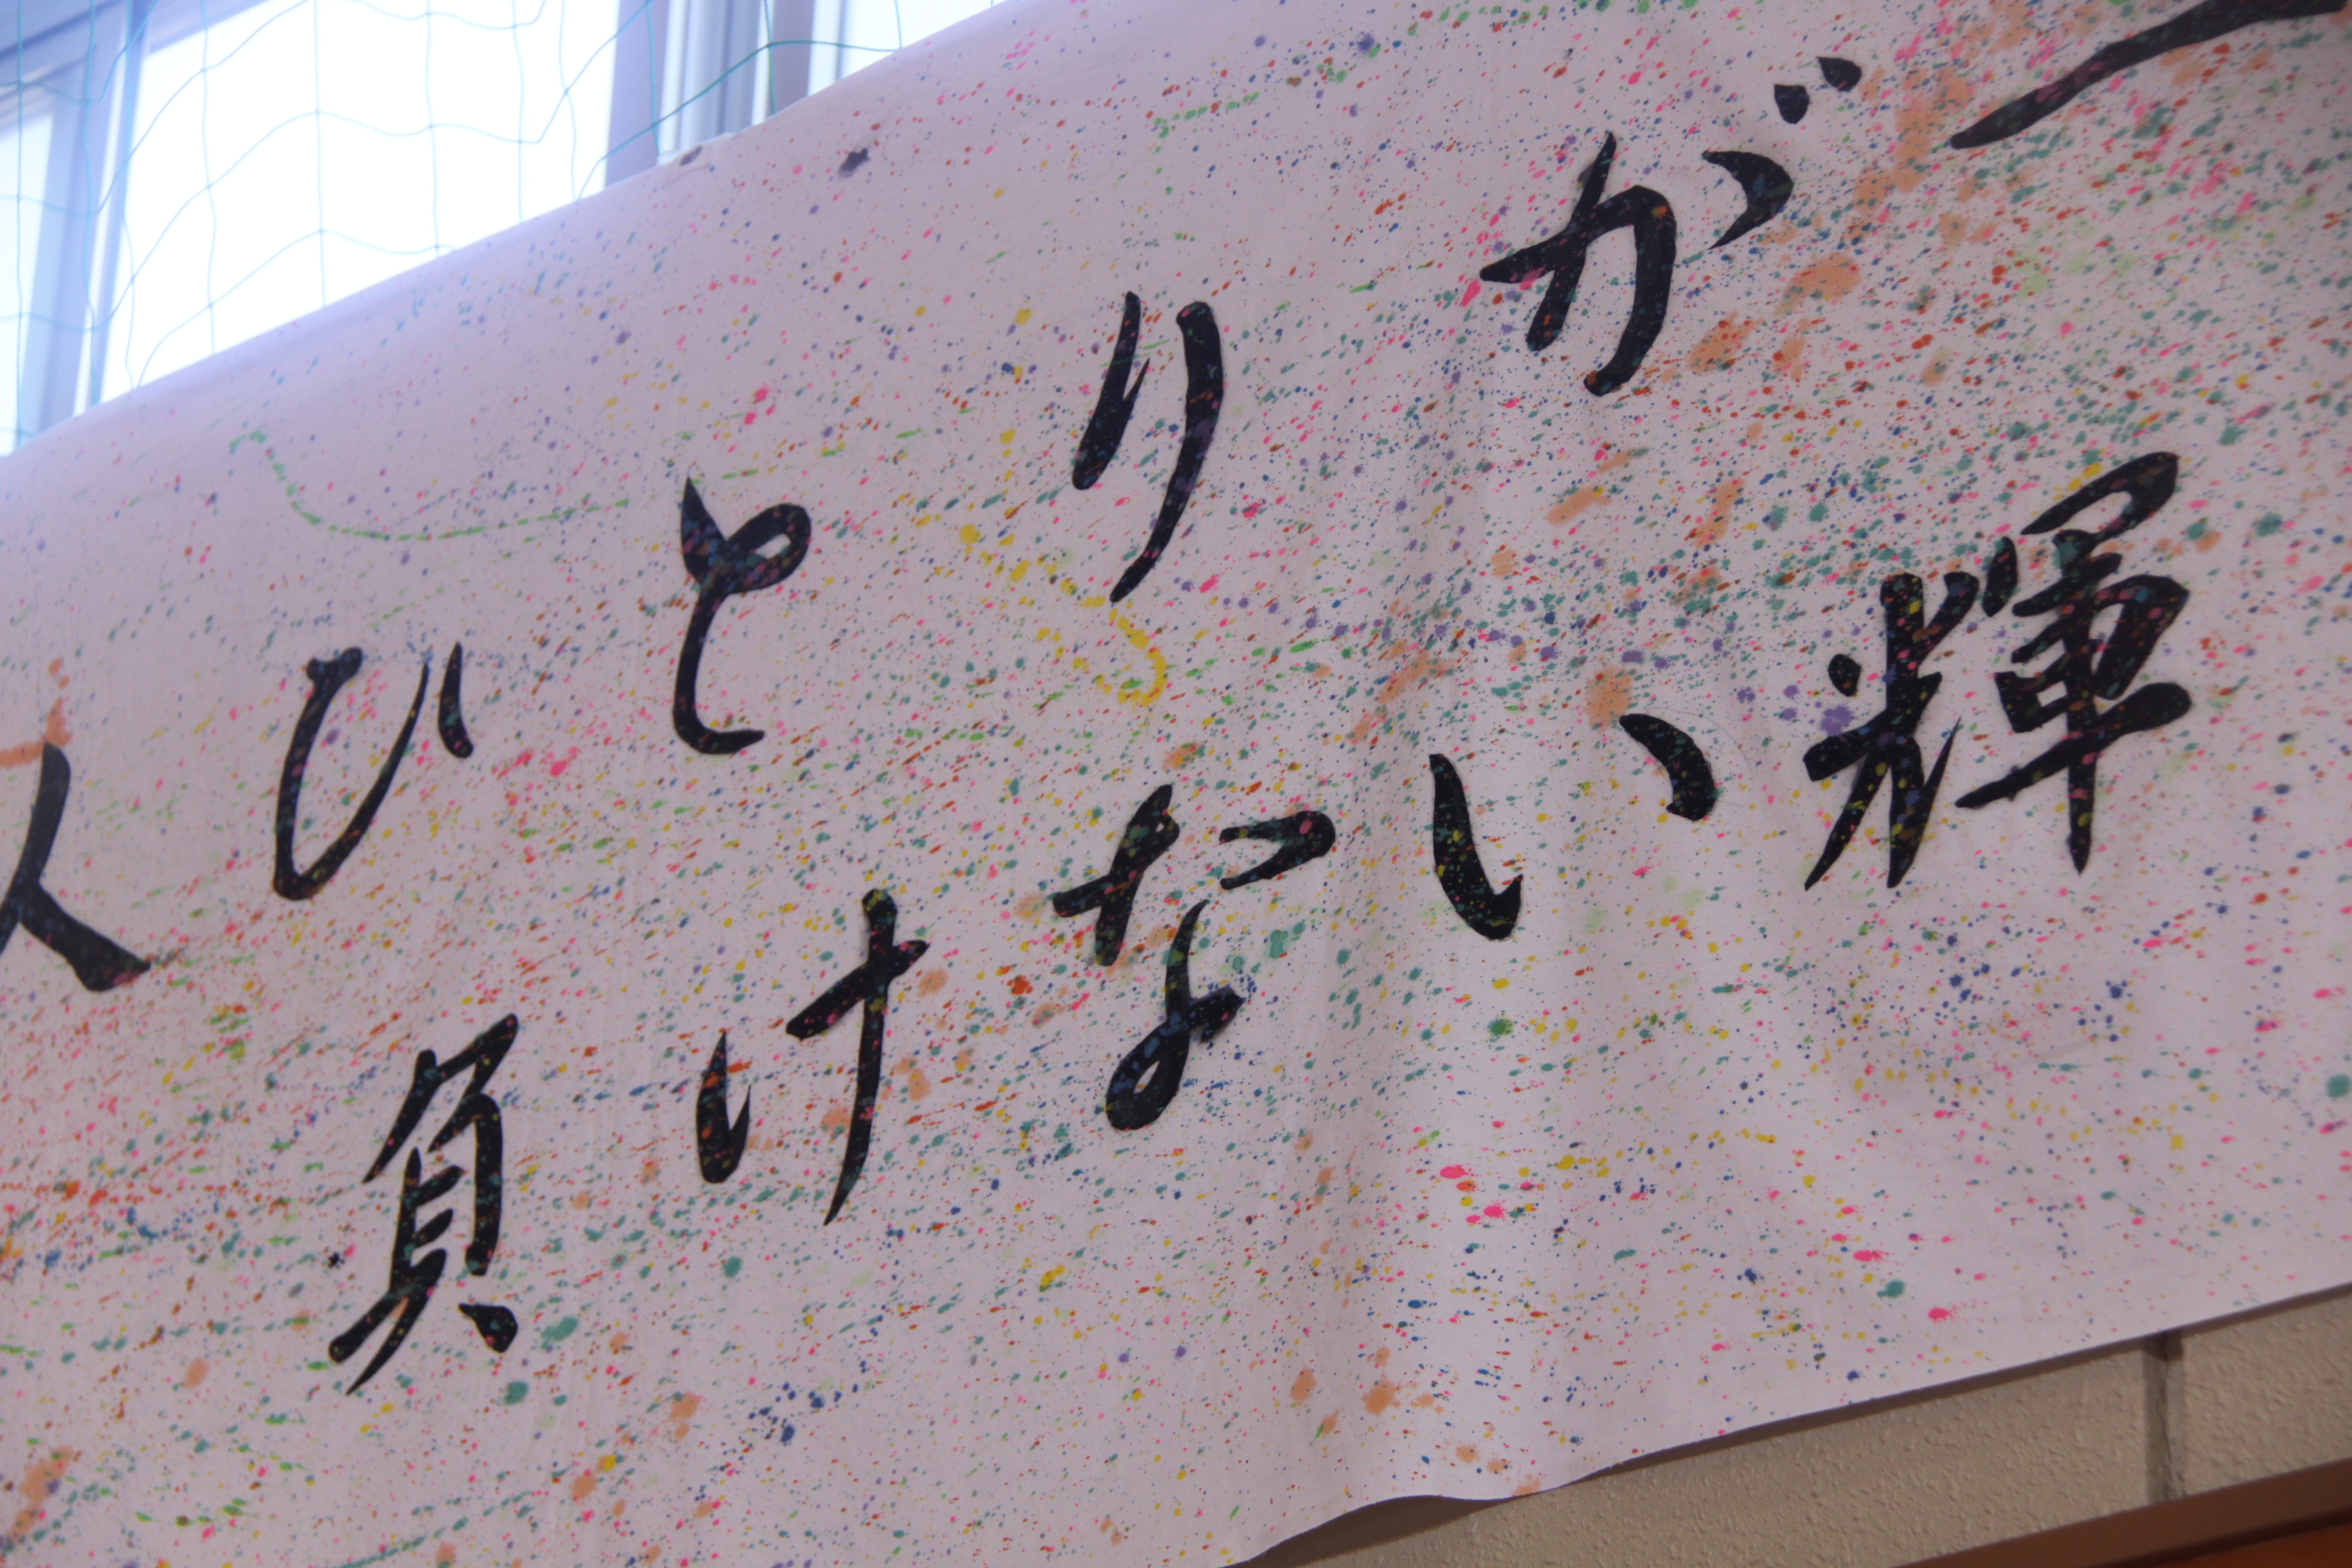 人びとりが一
負けない輝